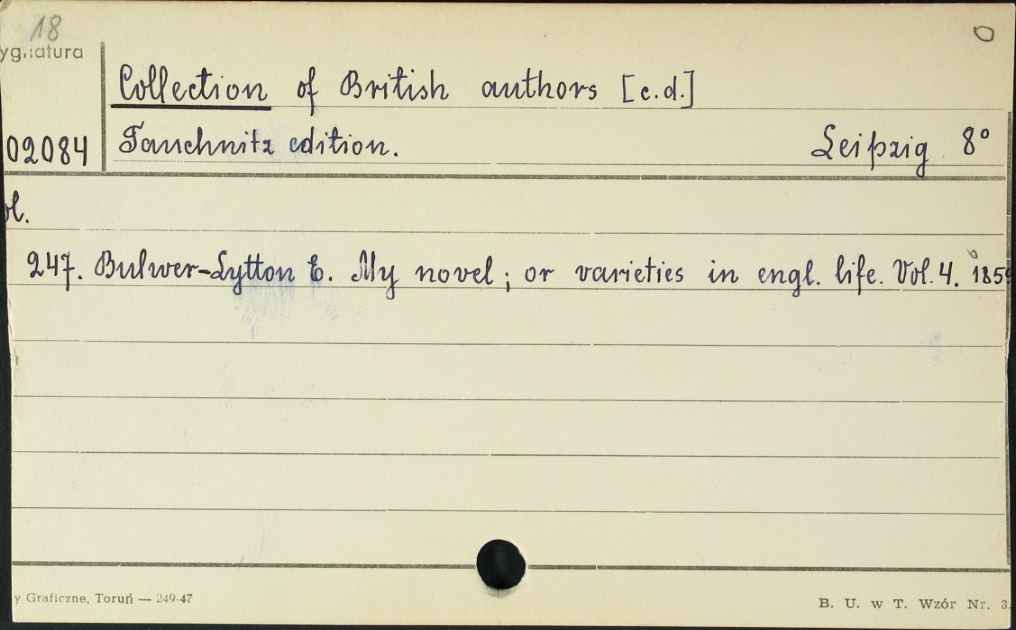 18
ygnatura
Collection of British authors [c.d.]
02084 Tauchnitz edition. Leipzig 8°
ol.
247. Bulwer-Lytton E. My novel; or varieties in engl. life. Vol. 4.
y Graficzne, Toruń — 249-47
B. U. w T. Wzór Nr. 3.